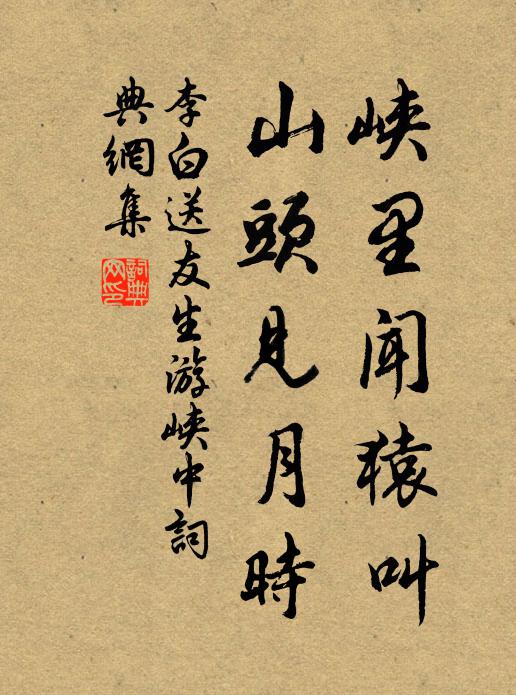 峡里闻猿叫
山頭見月時
李白送友生游峡中詞
典網集
詞典
网印